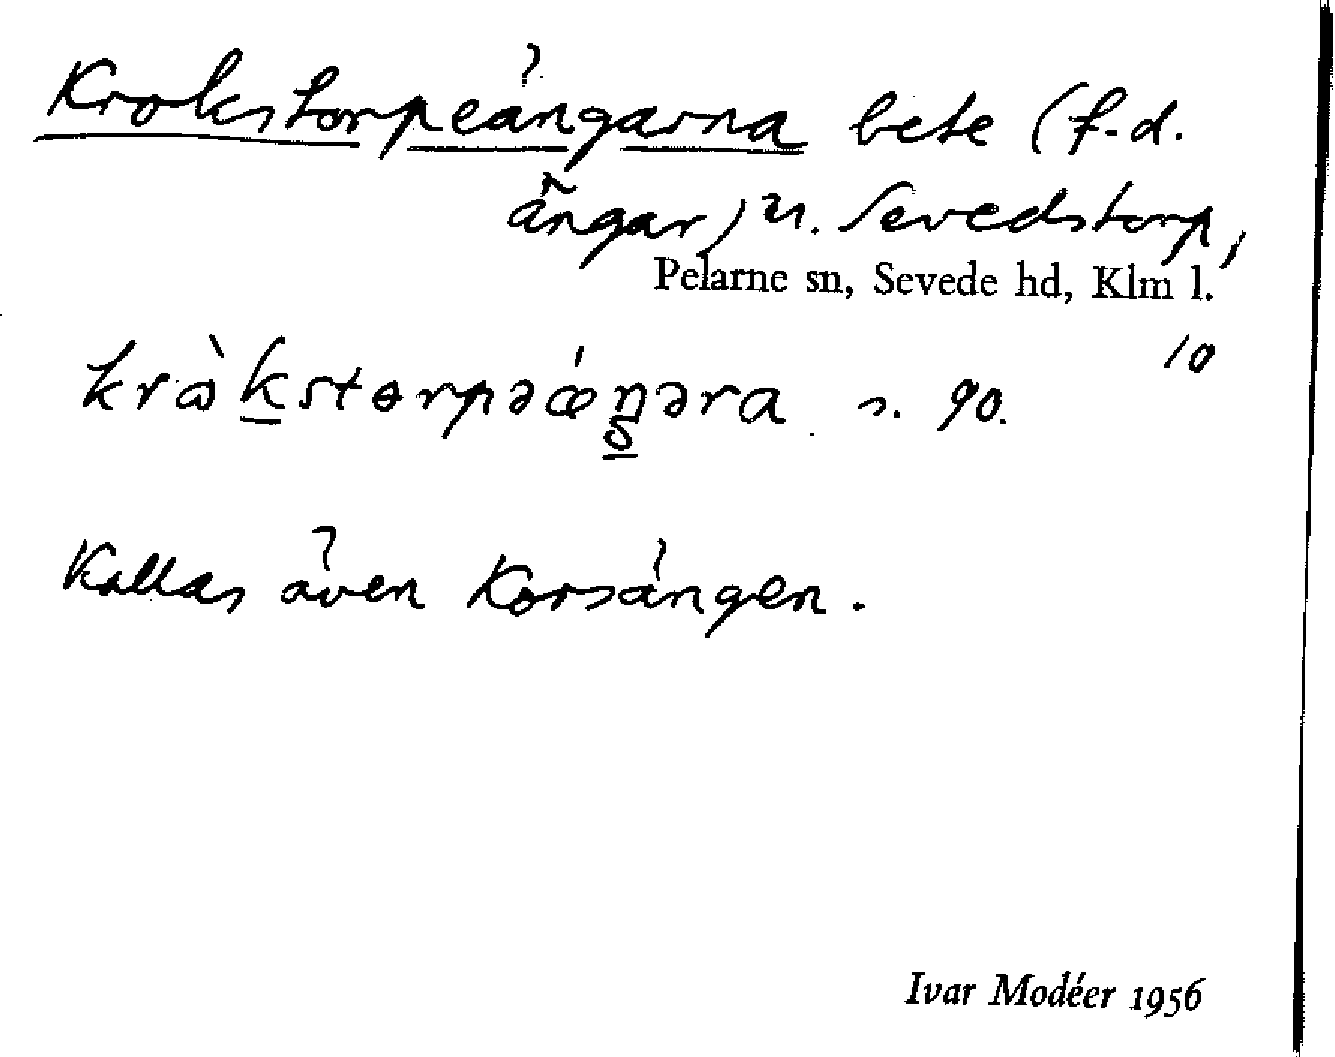 Krokstorpeängarna bete (f.d.
ängar) u. Sevedstorp,
Pelarne sn, Sevede hd, Klm l.
10
kràkstɵrpəǽŋəra s. 90.
Kallas även Korsängen.
Ivar Modéer 1956